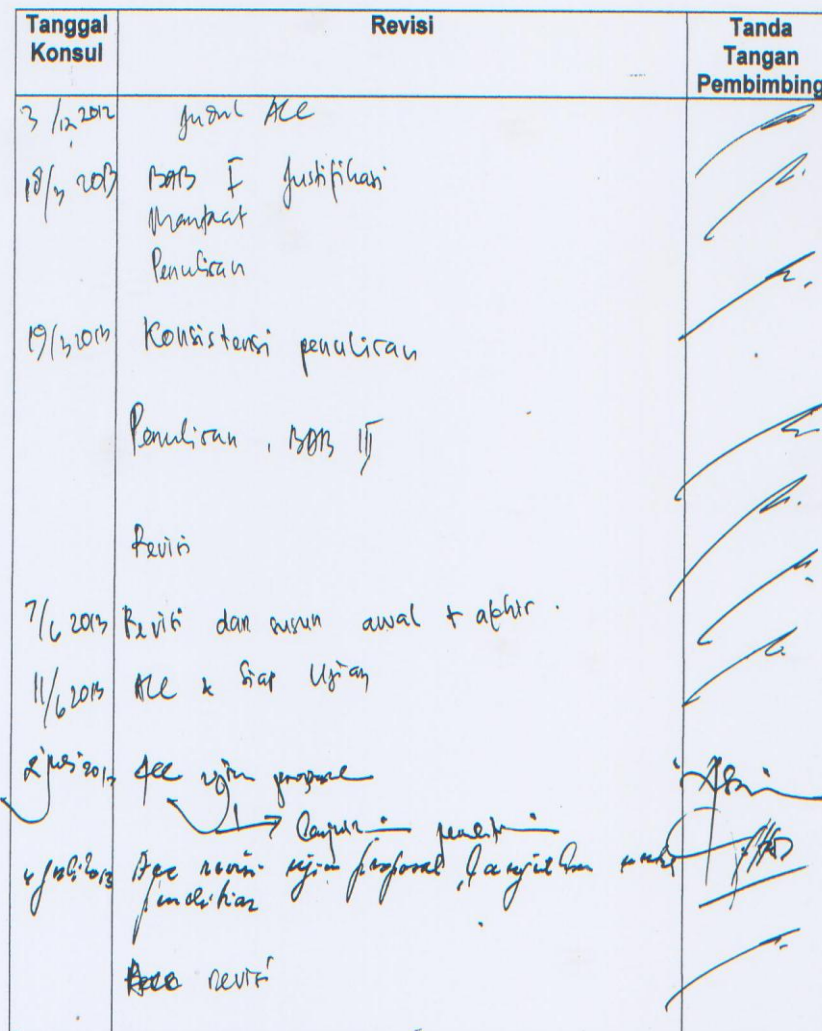 Tanggal Konsul Revisi Tanda Tangan Pembimbing
3/12 2012 Judul Acc
18/3 2013 BAB I Justifikasi
Manfaat
Penulisan
19/3 2013 Konsistensi penulisan
Penulisan, BAB III
Revisi
7/6 2013 Revisi dan susun awal + akhir.
11/6 2013 Acc & Siap Ujian
2 juli 2013 Acc ujian proposal
penelitian
4 Juli 2013 Acc revisi ujian proposal, lanjutkan
penelitian
revisi